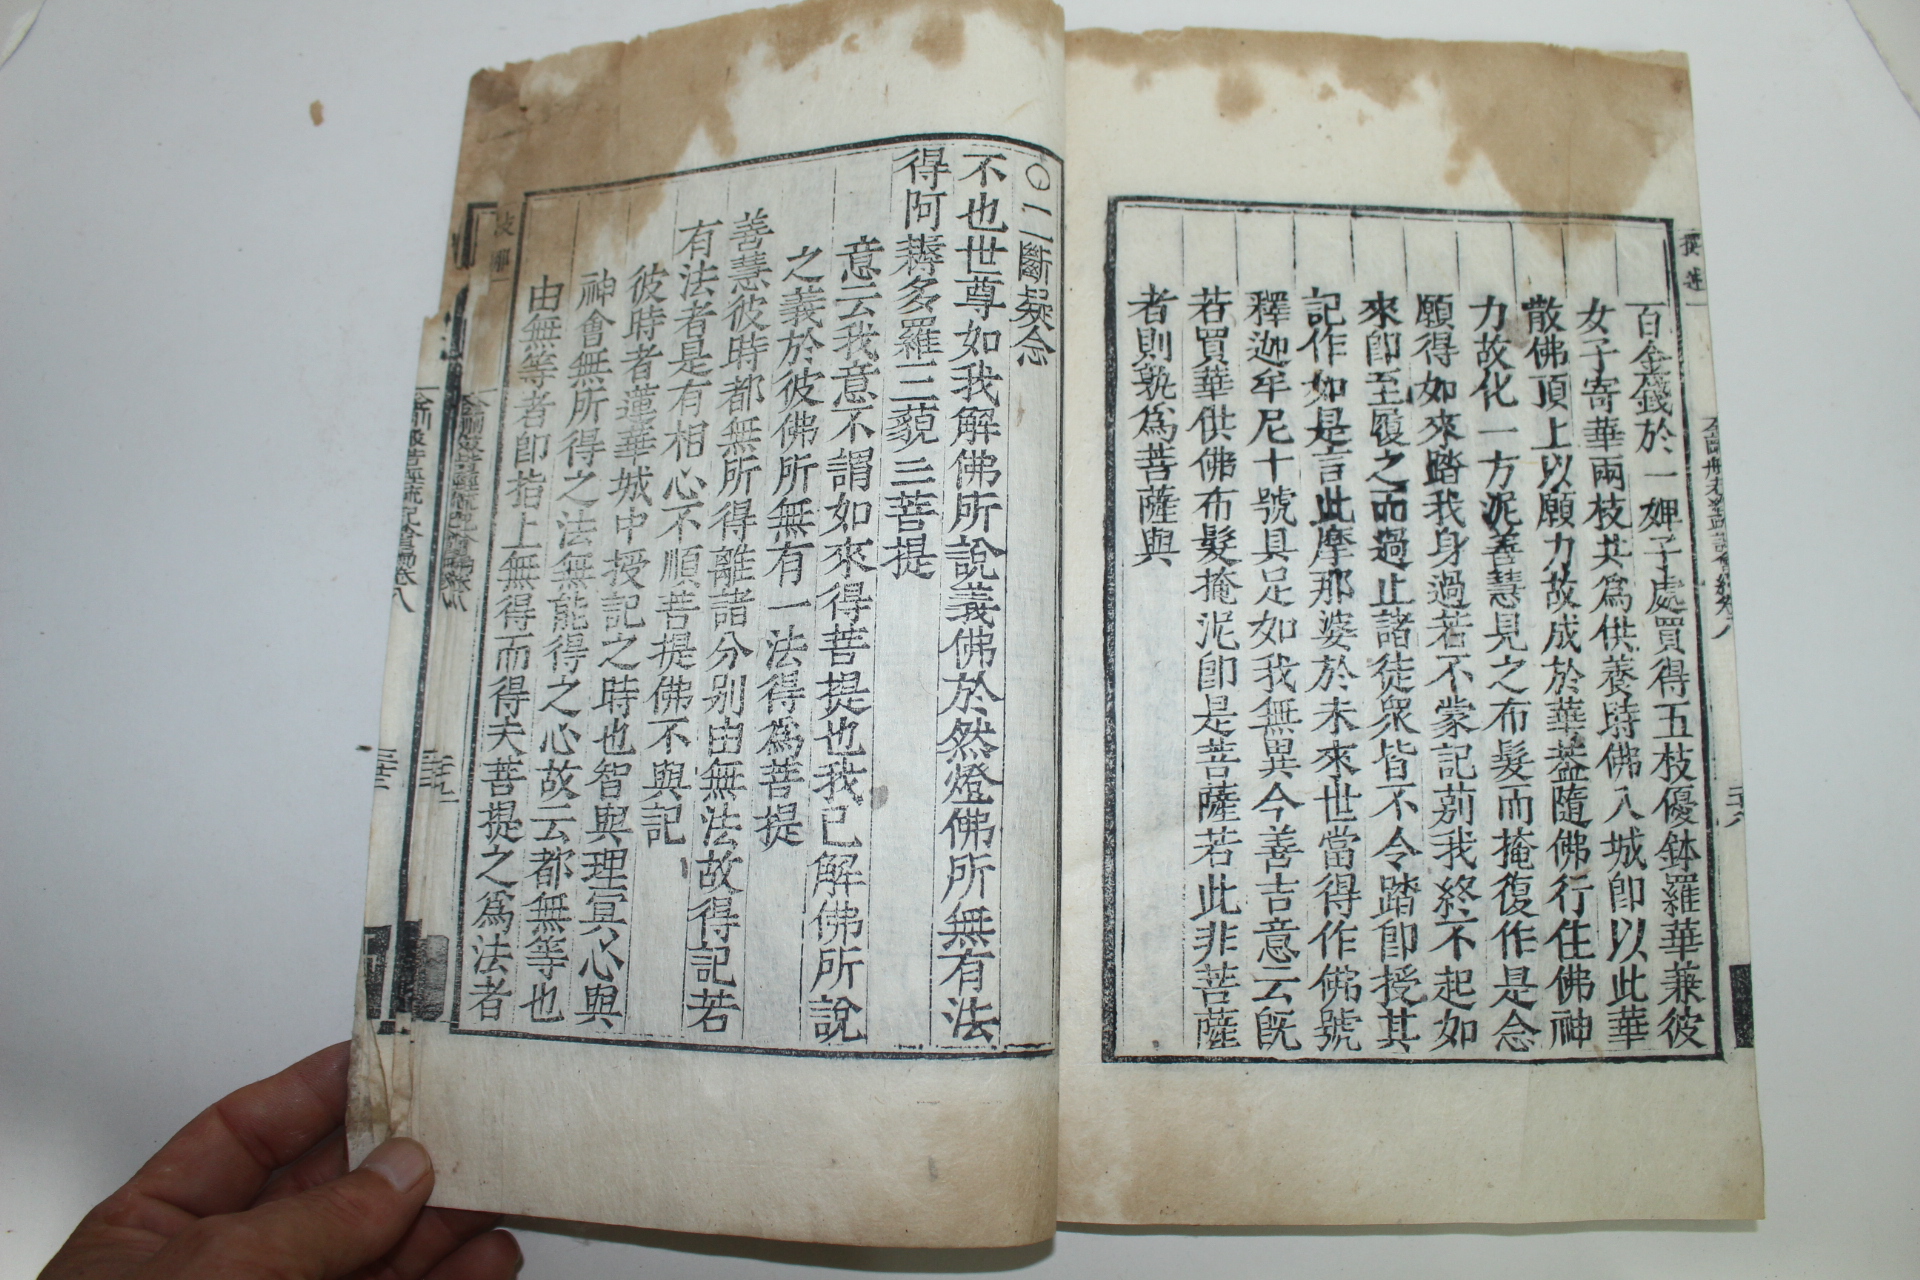 百金錢於一婢子處買得五枝優鉢羅華兼彼
女子寄華兩枝共爲供養時佛入城卽以此華
散佛頂上以願力故成於華盖隨佛行住佛神
力故化一方泥善慧見之布髮而掩復作是念
願得如來踏我身過若不蒙記莂我終不起如
來卽至履之而過止諸徒衆皆不令踏卽授其
記作如是言此摩那婆於未來世當得作佛號
釋迦牟尼十號具足如我無異今善吉意云旣
若買華供佛布髮掩泥卽是菩薩若此非菩薩
者則孰爲菩薩與
○二斷疑念
不也世尊如我解佛所說義佛於然燈佛所無有法
得阿耨多羅三藐三菩提
意云我意不謂如來得菩提也我已解佛所說
之義於彼佛所無有一法得爲菩提
善慧彼時都無所得離諸分別由無法故得記若
有法者是有相心不順菩提佛不與記
彼時者蓮華城中授記之時也智與理冥心與
神會無所得之法無能得之心故云都無等也
由無等者卽指上無得而得夫菩提之爲法者